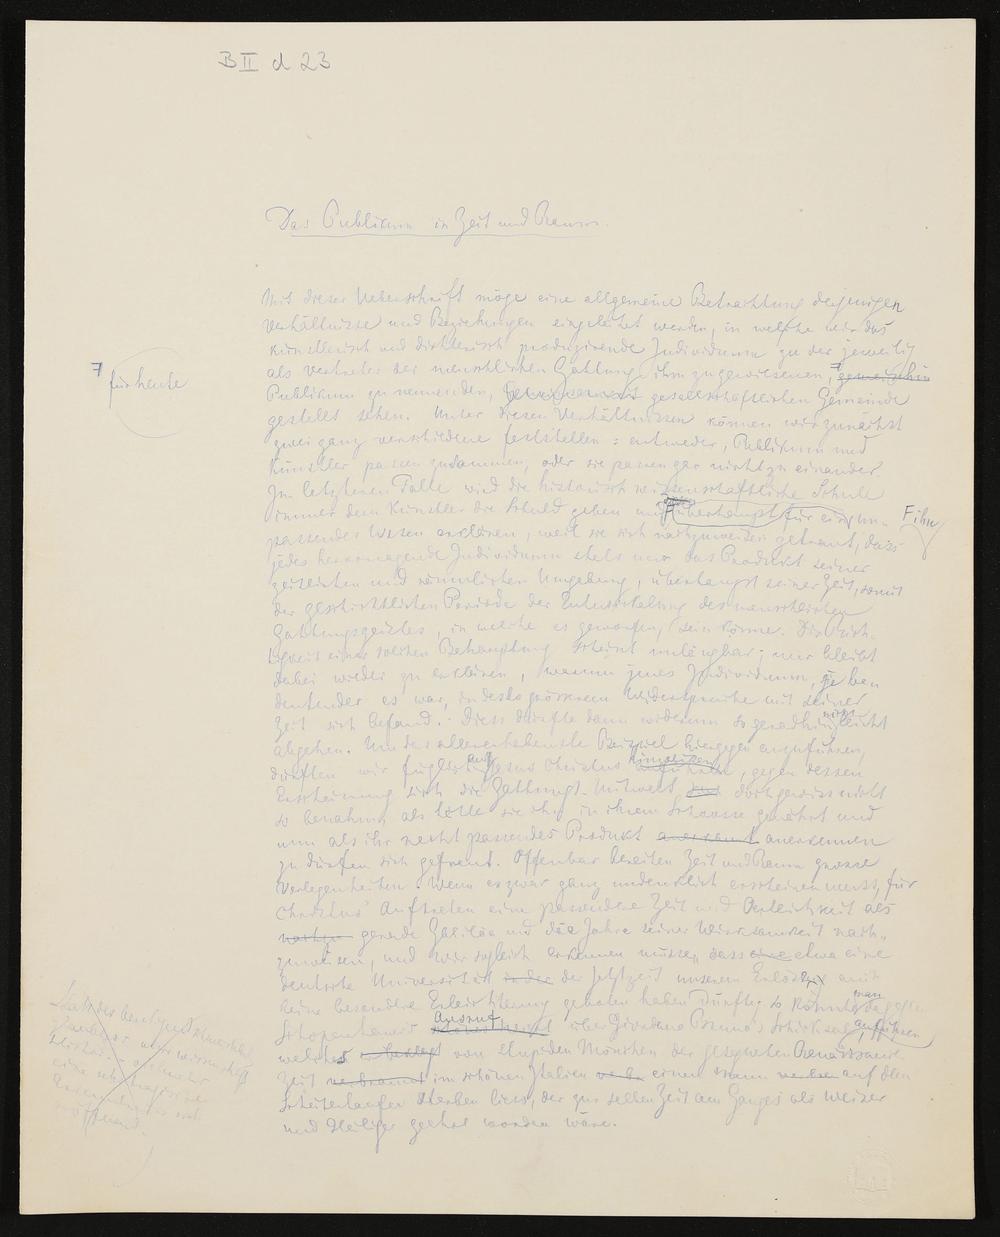 B II d 23
Das Publikum in Zeit und Raum.
Mit dieser Ueberschrift möge eine allgemeine Betrachtung derjenigen
Verhältnisse und Beziehungen eingeleitet werden, in welche wir das
künstlerisch und dichterisch produzirende Individuum zu der jeweilig
als Vertreter der menschlichen Gattung ihm zugewiesenen, gemeinhin
für heute
Publikum zu nennenden, gesellschaftlichen Gemeinde
gestellt sehen. Unter diesen Verhältnissen können wir zunächst
zwei ganz verschiedene feststellen: entweder, Publikum und
Künstler passen zusammen, oder sie passen gar nicht zu einander.
Im letzteren Falle wird die historisch wissenschaftliche Schule
immer dem Künstler die Schuld geben und überhaupt für ein un-
F ihn
passendes Wesen erklären, weil sie sich nachzuweisen getraut, dass
jedes hervorragende Individuum stets nur das Produkt seiner
zeitlichen und räumlichen Umgebung, überhaupt seiner Zeit, somit
der geschichtlichen Periode der Entwickelung des menschlichen
Gattungsgeistes, in welche es geworfen, sein könne. Die Rich-
tigkeit einer solchen Behauptung scheint unläugbar; nur bleibt
dabei wieder zu erklären, warum jenes Individuum, je be-
deutender es war, in desto grösserem Widerspruche mit seiner
Zeit sich befand. Diess dürfte dann wiederum so geradhin nicht leicht
abgehen. Um das allererhabenste Beispiel hiergegen anzuführen,
dürften wir füglich auf Jesus Christus hinweisen, gegen dessen
Erscheinung sich die Gattungs-Mitwelt doch gewiss nicht
so benahm, als hätte sie ihn in ihrem Schoosse genährt und
nun als ihr recht passendes Produkt anerkannt anerkennen
zu dürfen sich gefreut. Offenbar bereiten Zeit und Raum grosse
Verlegenheiten. Wenn es zwar ganz undenklich erscheinen muss, für
Christus' Auftreten eine passendere Zeit und Oertlichkeit als
gerade Galiläa und die Jahre seiner Wirksamkeit nach-
zuweisen, und wir sogleich erkennen müssen, dass eine etwa eine
deutsche Universität in der der Jetztzeit unserem Erlöser auch
keine besondere Erleichterung geboten haben dürfte, so könnte man dagegen
Schopenhauer's Ausruf über Giordano Bruno's Schicksal anführen,
welches von stupiden Mönchen der gesegneten Renaissance-
Zeit im schönen Italien einen Mann auf dem
Scheiterhaufen sterben liess, der zur selben Zeit am Ganges als Weiser
und Heiliger geehrt worden wäre.